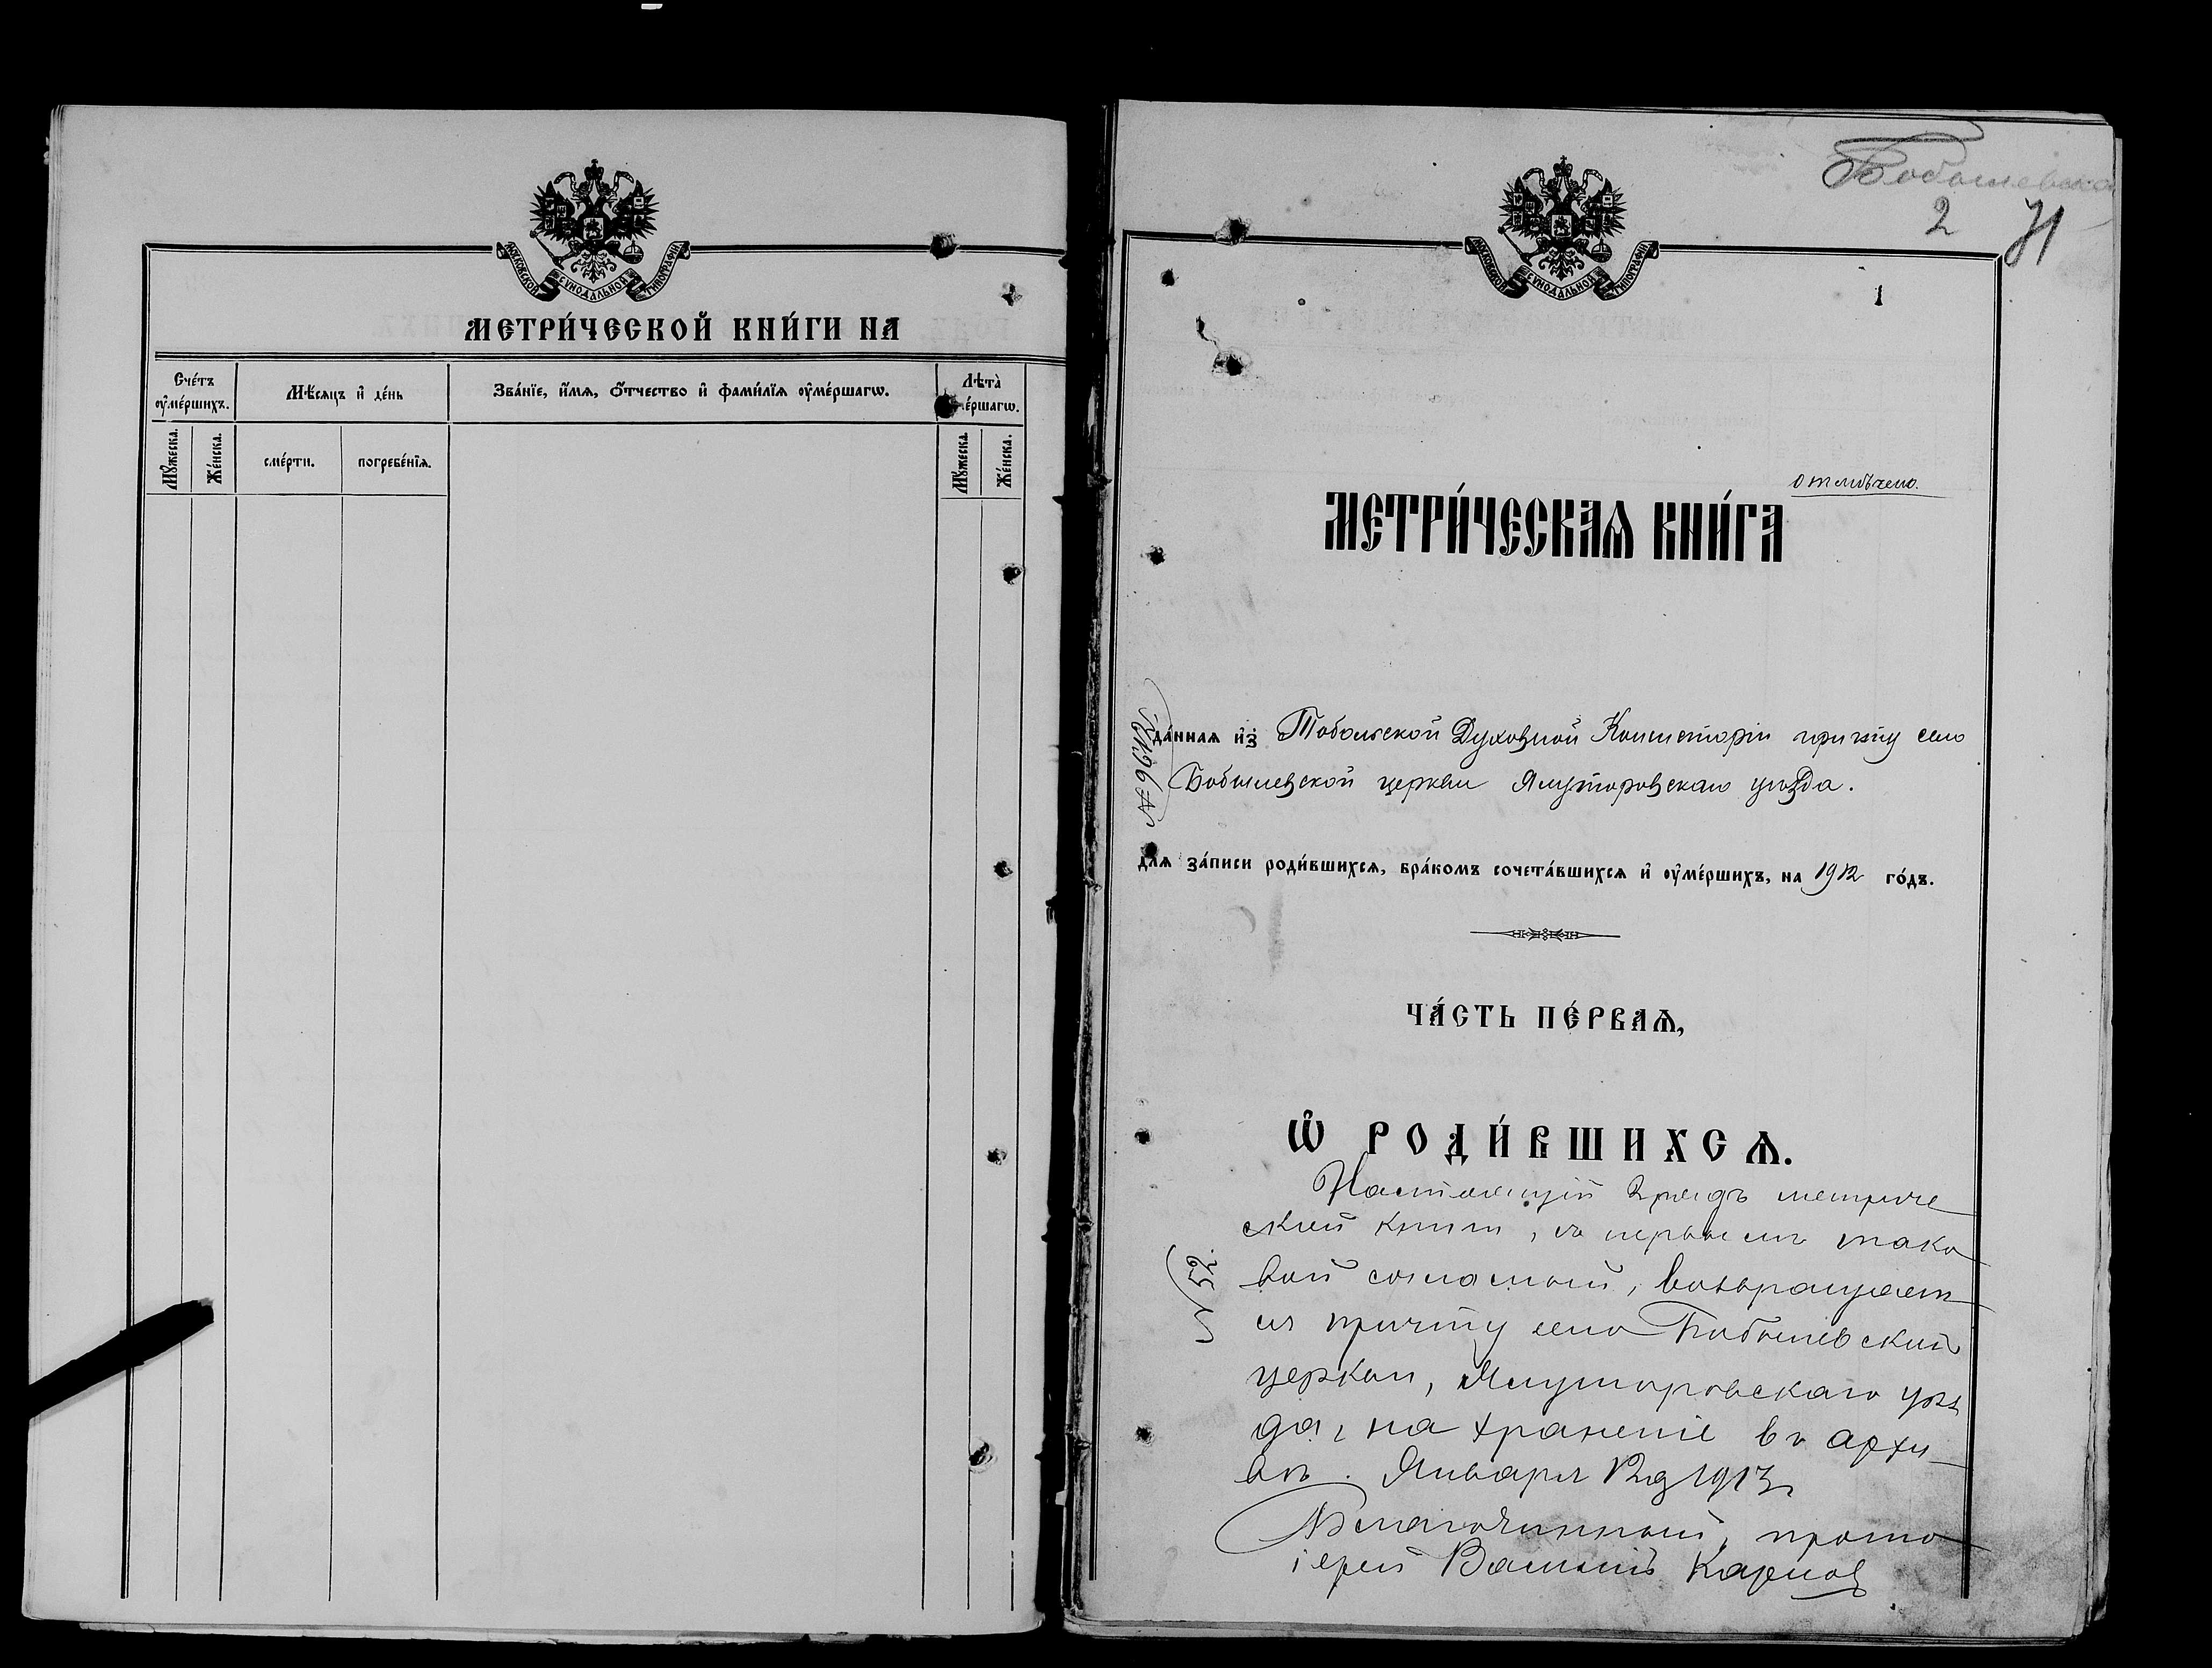 МОСКОВСКОЙ СѴНОДАЛЬНОЙ ТИПОГРАФІИ
МЕТРИ́ЧЕСКОЙ КНИ́ГИ НА
Сче́тъ ᲂу҆ме́ршихъ.
Мѣ́сяцъ и҆ де́нь
Зва́нїе, и҆́мѧ, ѻ҆́тчество и҆ фами́лїѧ ᲂу҆ме́ршагѡ.
Лѣта̀ ме́ршагѡ.
Мꙋ́жеска.
Же́нска.
сме́рти.
погребе́нїѧ.
Мꙋ́жеска.
Же́нска.
Бобылевска
2 71
МОСКОВСКОЙ СѴНОДАЛЬНОЙ ТИПОГРАФІИ
1
отмѣчено.
МЕТРИ́ЧЕСКАѦ КНИ́ГА
да́ннаѧ и҆з̾ Тобольской Духовной Консисторіи причту село
Бобылевской церкви Ялуторовскаго уѣзда.
длѧ за́писи роди́вшихсѧ, бра́комъ сочета́вшихсѧ и҆ ᲂу҆ме́ршихъ, на 1912 го́дъ.
ЧА́СТЬ ПЕ́РВАѦ,
Ѡ҆ РОДИ́ВШИХСѦ.
Настоящій экз метриче
ской книги, съ первымъ тако
вой согласный, возвращает
ся причту село Бобылевской
церкви, Ялуторовскаго уѣз
да, на храненіе въ архи
вѣ. Января 12 д 1913 г
Благочинный, прото
іерей Василій Карпов